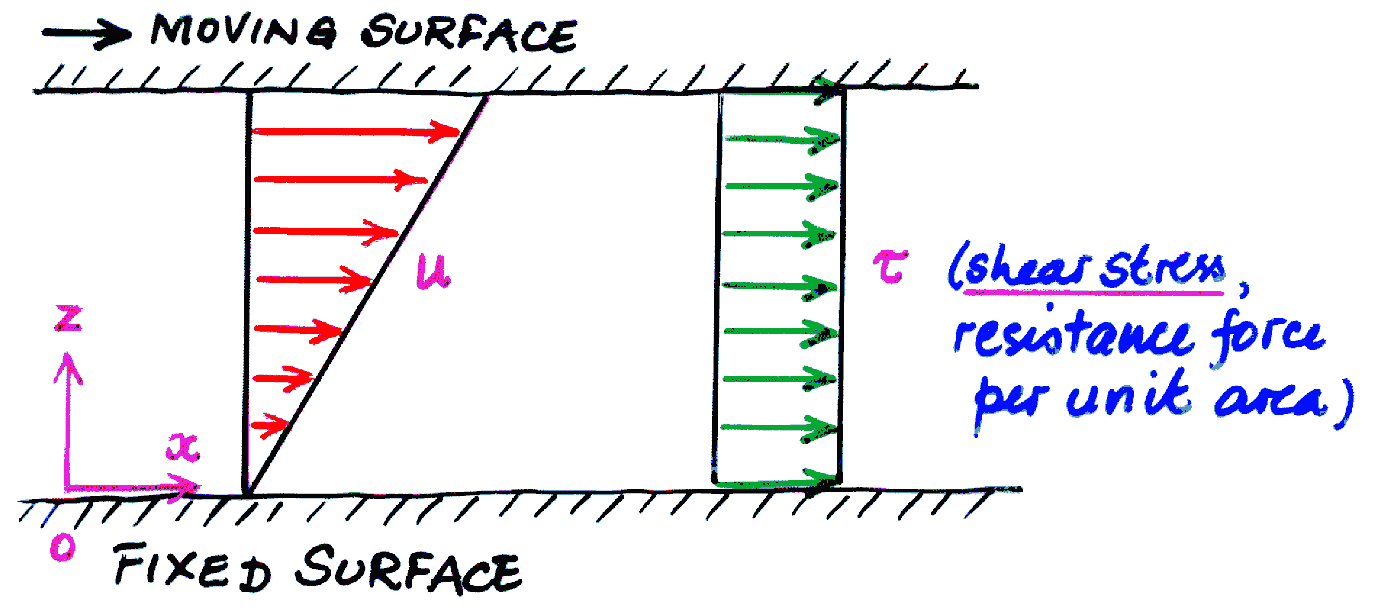 MOVING SURFACE
u
τ (shear stress,
resistance force
per unit area)
z
x
0
FIXED SURFACE